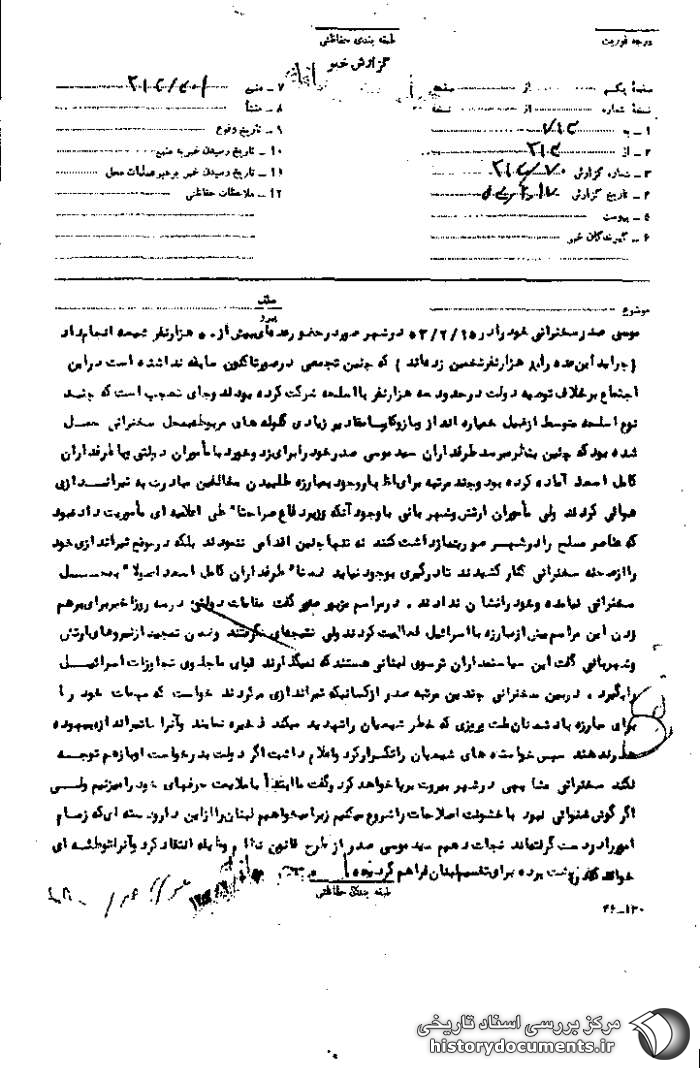 درجه فوریت
طبقه بندی حفاظتی
گزارش خبر
صفحهٔ یکم از صفحه
نسخهٔ شماره از نسخه
۱ ـ به
۲ ـ از
۳ ـ شماره گزارش
۴ ـ تاریخ گزارش
۵ ـ پیوست
۶ ـ گیرندگان خبر
۷ ـ منبع
۸ ـ منشأ
۹ ـ تاریخ وقوع
۱۰ ـ تاریخ رسیدن خبر به منبع
۱۱ ـ تاریخ رسیدن خبر به رهبر عملیات محل
۱۲ ـ ملاحظات حفاظتی
موضوع
عطف
پیرو
موسی صدر سخنرانی خود را در ۵۳/۲/۱۵ در شهر صور در حضور عده ای بیش از ۵۰ هزار نفر شیعه انجام داد
(جراید این عده را هزار نفر تخمین زده اند) که چنین تجمعی در صور تاکنون سابقه نداشته است در این
اجتماع برخلاف توصیه دولت در حدود سه هزار نفر با اسلحه شرکت کرده بودند وجای تعجب است که چند
نوع اسلحه متوسط از قبیل خمپاره انداز وبازوکا با مقادیر زیادی گلوله های مربوطه به محل سخنرانی حمل
شده بود که چنین بنظر میرسد طرفداران سید موسی صدر خود را برای زد وخورد با مأموران دولتی ویا طرفداران
کامل اسعد آماده کرده بود وچند مرتبه برای اظهار وجود بمبارزه طلبیدن مخالفین مبادرت به تیراندازی
هوائی کردند ولی مأموران ارتش وشهربانی با وجود آنکه وزیر دفاع صراحتا" طی اعلامیه ای مأموریت داده بود
که عناصر مسلح را در شهر صور بازداشت کنند نه تنها چنین اقدامی ننمودند بلکه در موقع تیراندازی خود
را از صحنه سخنرانی کنار کشیدند تا درگیری بوجود نیاید ضمنا" طرفداران کامل اسعد اصولا" بمحل
سخنرانی نیامده وخود را نشان ندادند . در مراسم مزبور صدر گفت مقامات دولتی در سه روز اخیر برای برهم
زدن این مراسم بیش از مبارزه با اسرائیل فعالیت کردند ولی نتیجه ای نگرفتند وضمن تمجید از نیروهای ارتش
وشهربانی گفت این سیاستمداران ترسوی لبنانی هستند که نمیگذارند قوای ما جلوی تجاوزات اسرائیل
را بگیرد ، در بین سخنرانی چندین مرتبه صدر از کسانیکه تیراندازی میکردند خواست که مهمات خود را
برای مبارزه با دشمنان ملت بریزی که خطر شیعیان را تهدید میکند ذخیره نمایند وآنرا با تیراندازی بیهوده
هدر ندهند سپس خواسته های شیعیان را تکرار کرد واعلام داشت اگر دولت بدرخواست او باز هم توجه
نکند سخنرانی مشابهی در شهر بیروت برپا خواهد کرد وگفت ما ابتدأ با ملایمت حرفهای خود را میزنیم ولی
اگر گوش شنوائی نبود با خشونت اصلاحات را شروع میکنیم زیرا میخواهیم لبنان را از این دار ودسته ای که زمام
امور را در دست گرفته اند نجات دهیم سید موسی صدر از طرح قانون نظام وظیفه انتقاد کرد وآنرا توطئه ای
خواند که در پشت پرده برای تقسیم لبنان فراهم گردیده
طبقه بندی حفاظتی
۲۶-۱۳۰
مرکز بررسی اسناد تاریخی
historydocuments.ir